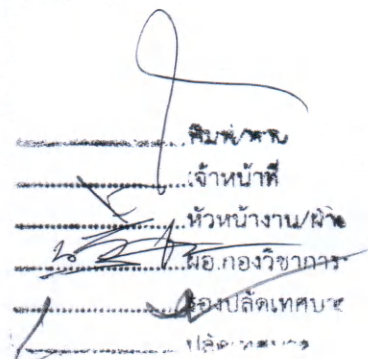 พิมพ์/ทาน
เจ้าหน้าที่
หัวหน้างาน/ฝ่าย
ผอ.กองวิชาการ
รองปลัดเทศบาล
ปลัดเทศบาล